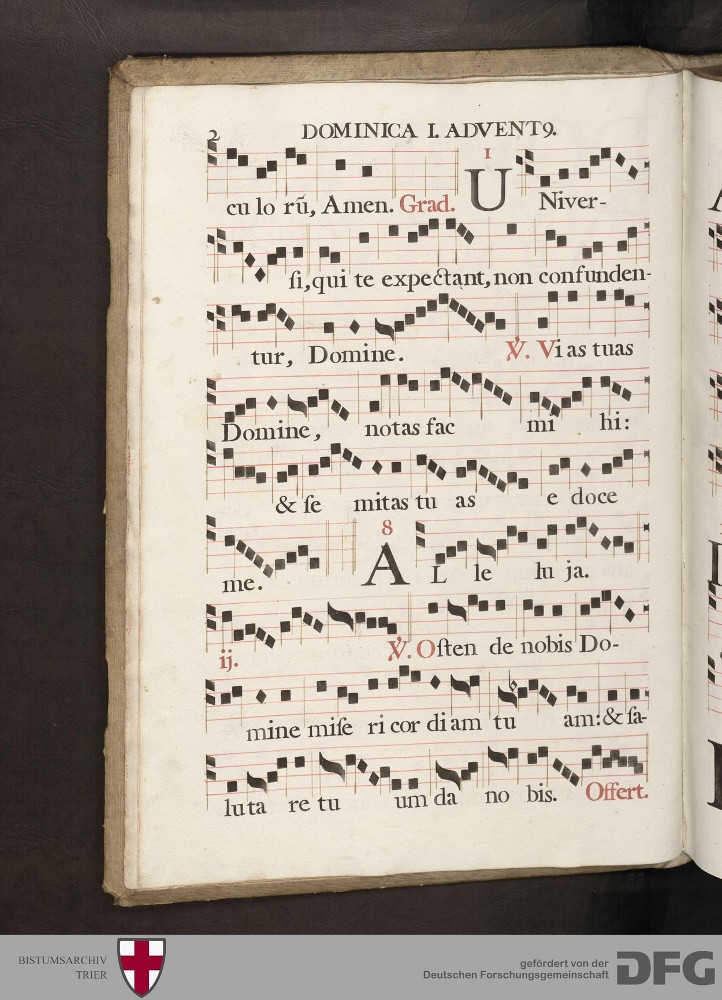 2 DOMINICA I. ADVENT9.
cu lo rũ, Amen. Grad. 1 U Niver-
ſi, qui te expectant, non confunden-
tur, Domine. ℣. Vi as tuas
Domine, notas fac mi hi:
& ſe mitas tu as e doce
me. 8 A L le lu ja.
ij. ℣. Oſten de nobis Do-
mine miſe ri cor di am tu am: & ſa-
lu ta re tu um da no bis. Offert.
BISTUMSARCHIV
TRIER
gefördert von der
Deutschen Forschungsgemeinschaft
DFG